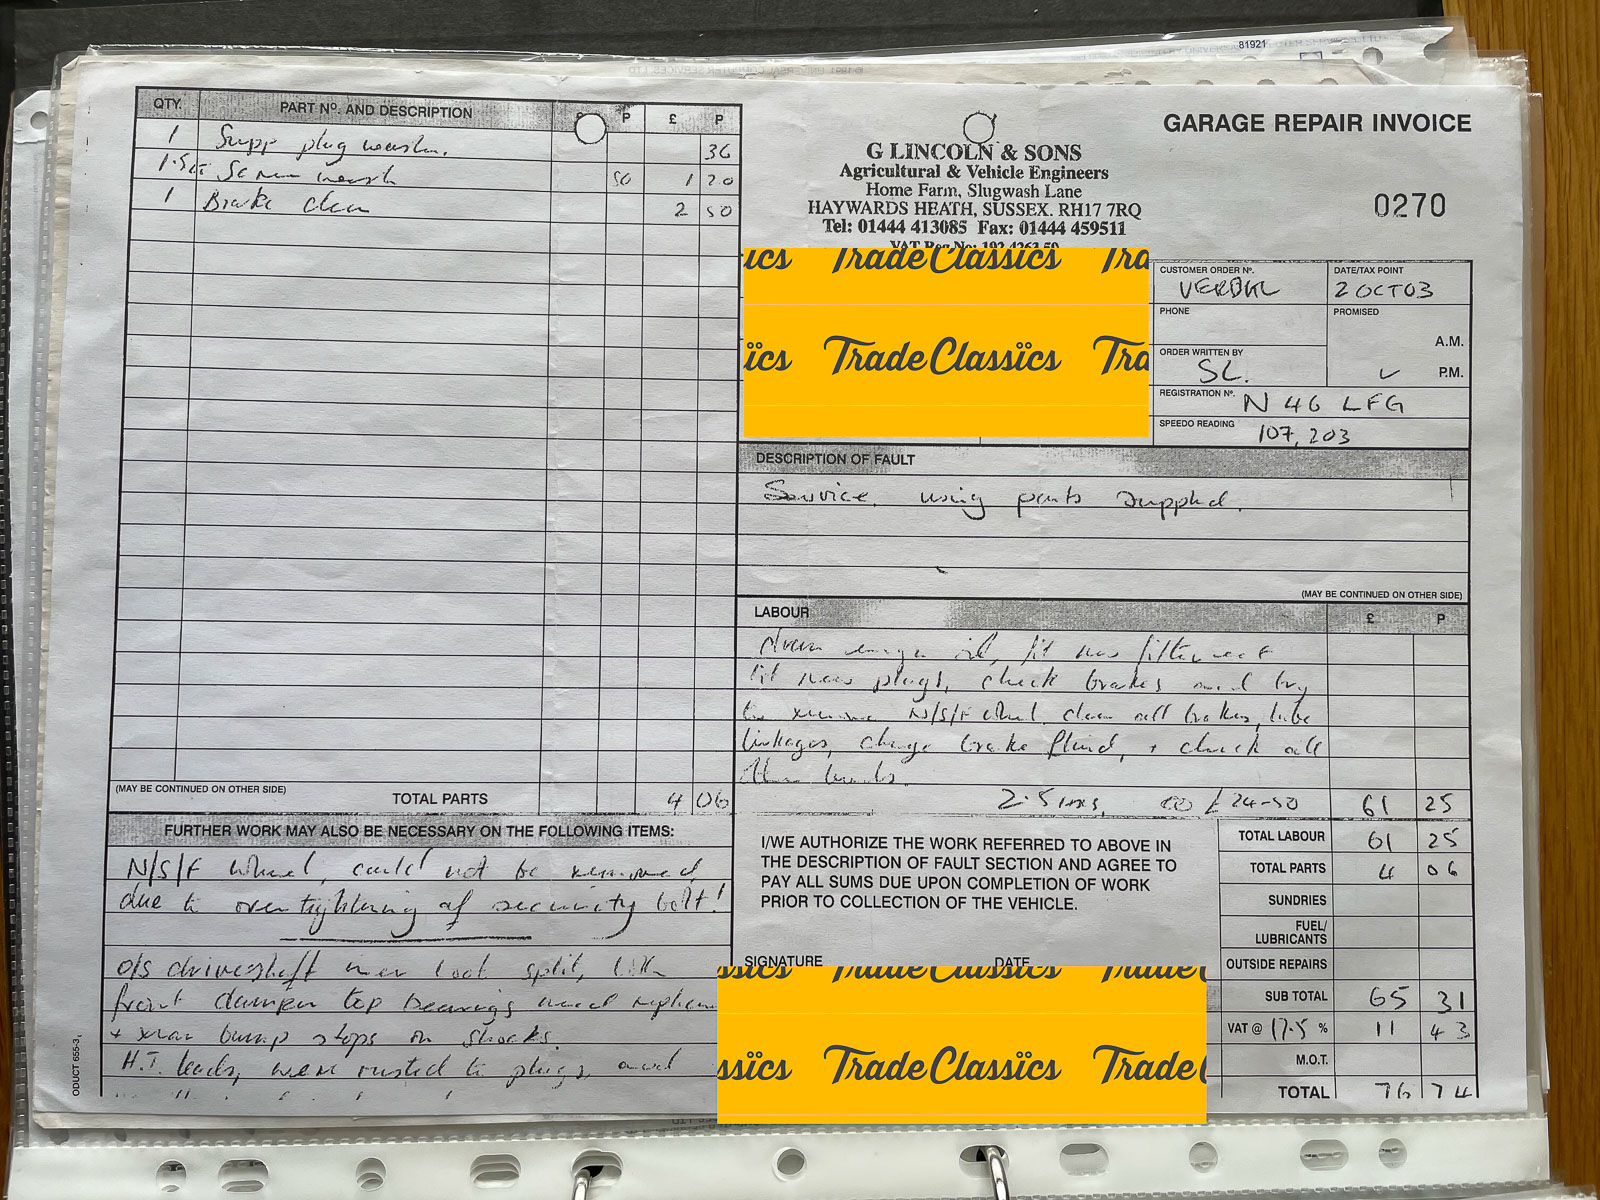 81921
GARAGE REPAIR INVOICE
G LINCOLN & SONS
Agricultural & Vehicle Engineers
Home Farm, Slugwash Lane
HAYWARDS HEATH, SUSSEX. RH17 7RQ
Tel: 01444 413085 Fax: 01444 459511
VAT Reg No: 192 4263 59
0270
QTY. PART Nº. AND DESCRIPTION £ P £ P
1 Sump plug washer. 36
Screen wash 50 1 20
1 Brake clean 2 50
(MAY BE CONTINUED ON OTHER SIDE)
TOTAL PARTS 4 06
ics TradeClassics Tra
ïcs TradeClassïcs Tra
CUSTOMER ORDER Nº. VERBAL
DATE/TAX POINT 2 OCT 03
PHONE
PROMISED
A.M.
P.M.
ORDER WRITTEN BY SL.
REGISTRATION Nº. N 46 LFG
SPEEDO READING 107,203
DESCRIPTION OF FAULT
Service using parts supplied.
(MAY BE CONTINUED ON OTHER SIDE)
LABOUR £ P
drain engine oil, fit new filter
fit new plugs, check brakes and try
to remove N/S/F wheel. clean all brakes, lube
linkages, change brake fluid, + check all
other levels.
2.5 hrs @ £24-50 61 25
I/WE AUTHORIZE THE WORK REFERRED TO ABOVE IN
THE DESCRIPTION OF FAULT SECTION AND AGREE TO
PAY ALL SUMS DUE UPON COMPLETION OF WORK
PRIOR TO COLLECTION OF THE VEHICLE.
SIGNATURE DATE
ssics TradeClassics Trade
ssïcs TradeClassïcs Trade
TOTAL LABOUR 61 25
TOTAL PARTS 4 06
SUNDRIES
FUEL/
LUBRICANTS
OUTSIDE REPAIRS
SUB TOTAL 65 31
VAT @ 17.5 % 11 43
M.O.T.
TOTAL 76 74
FURTHER WORK MAY ALSO BE NECESSARY ON THE FOLLOWING ITEMS:
N/S/F wheel, could not be removed,
due to over tightening of security bolt!
o/s driveshaft inner boot split, both
front damper top bearings need
+ rear bump stops on shocks.
H.T. leads, were rusted to plugs, and
ODUCT 655-3